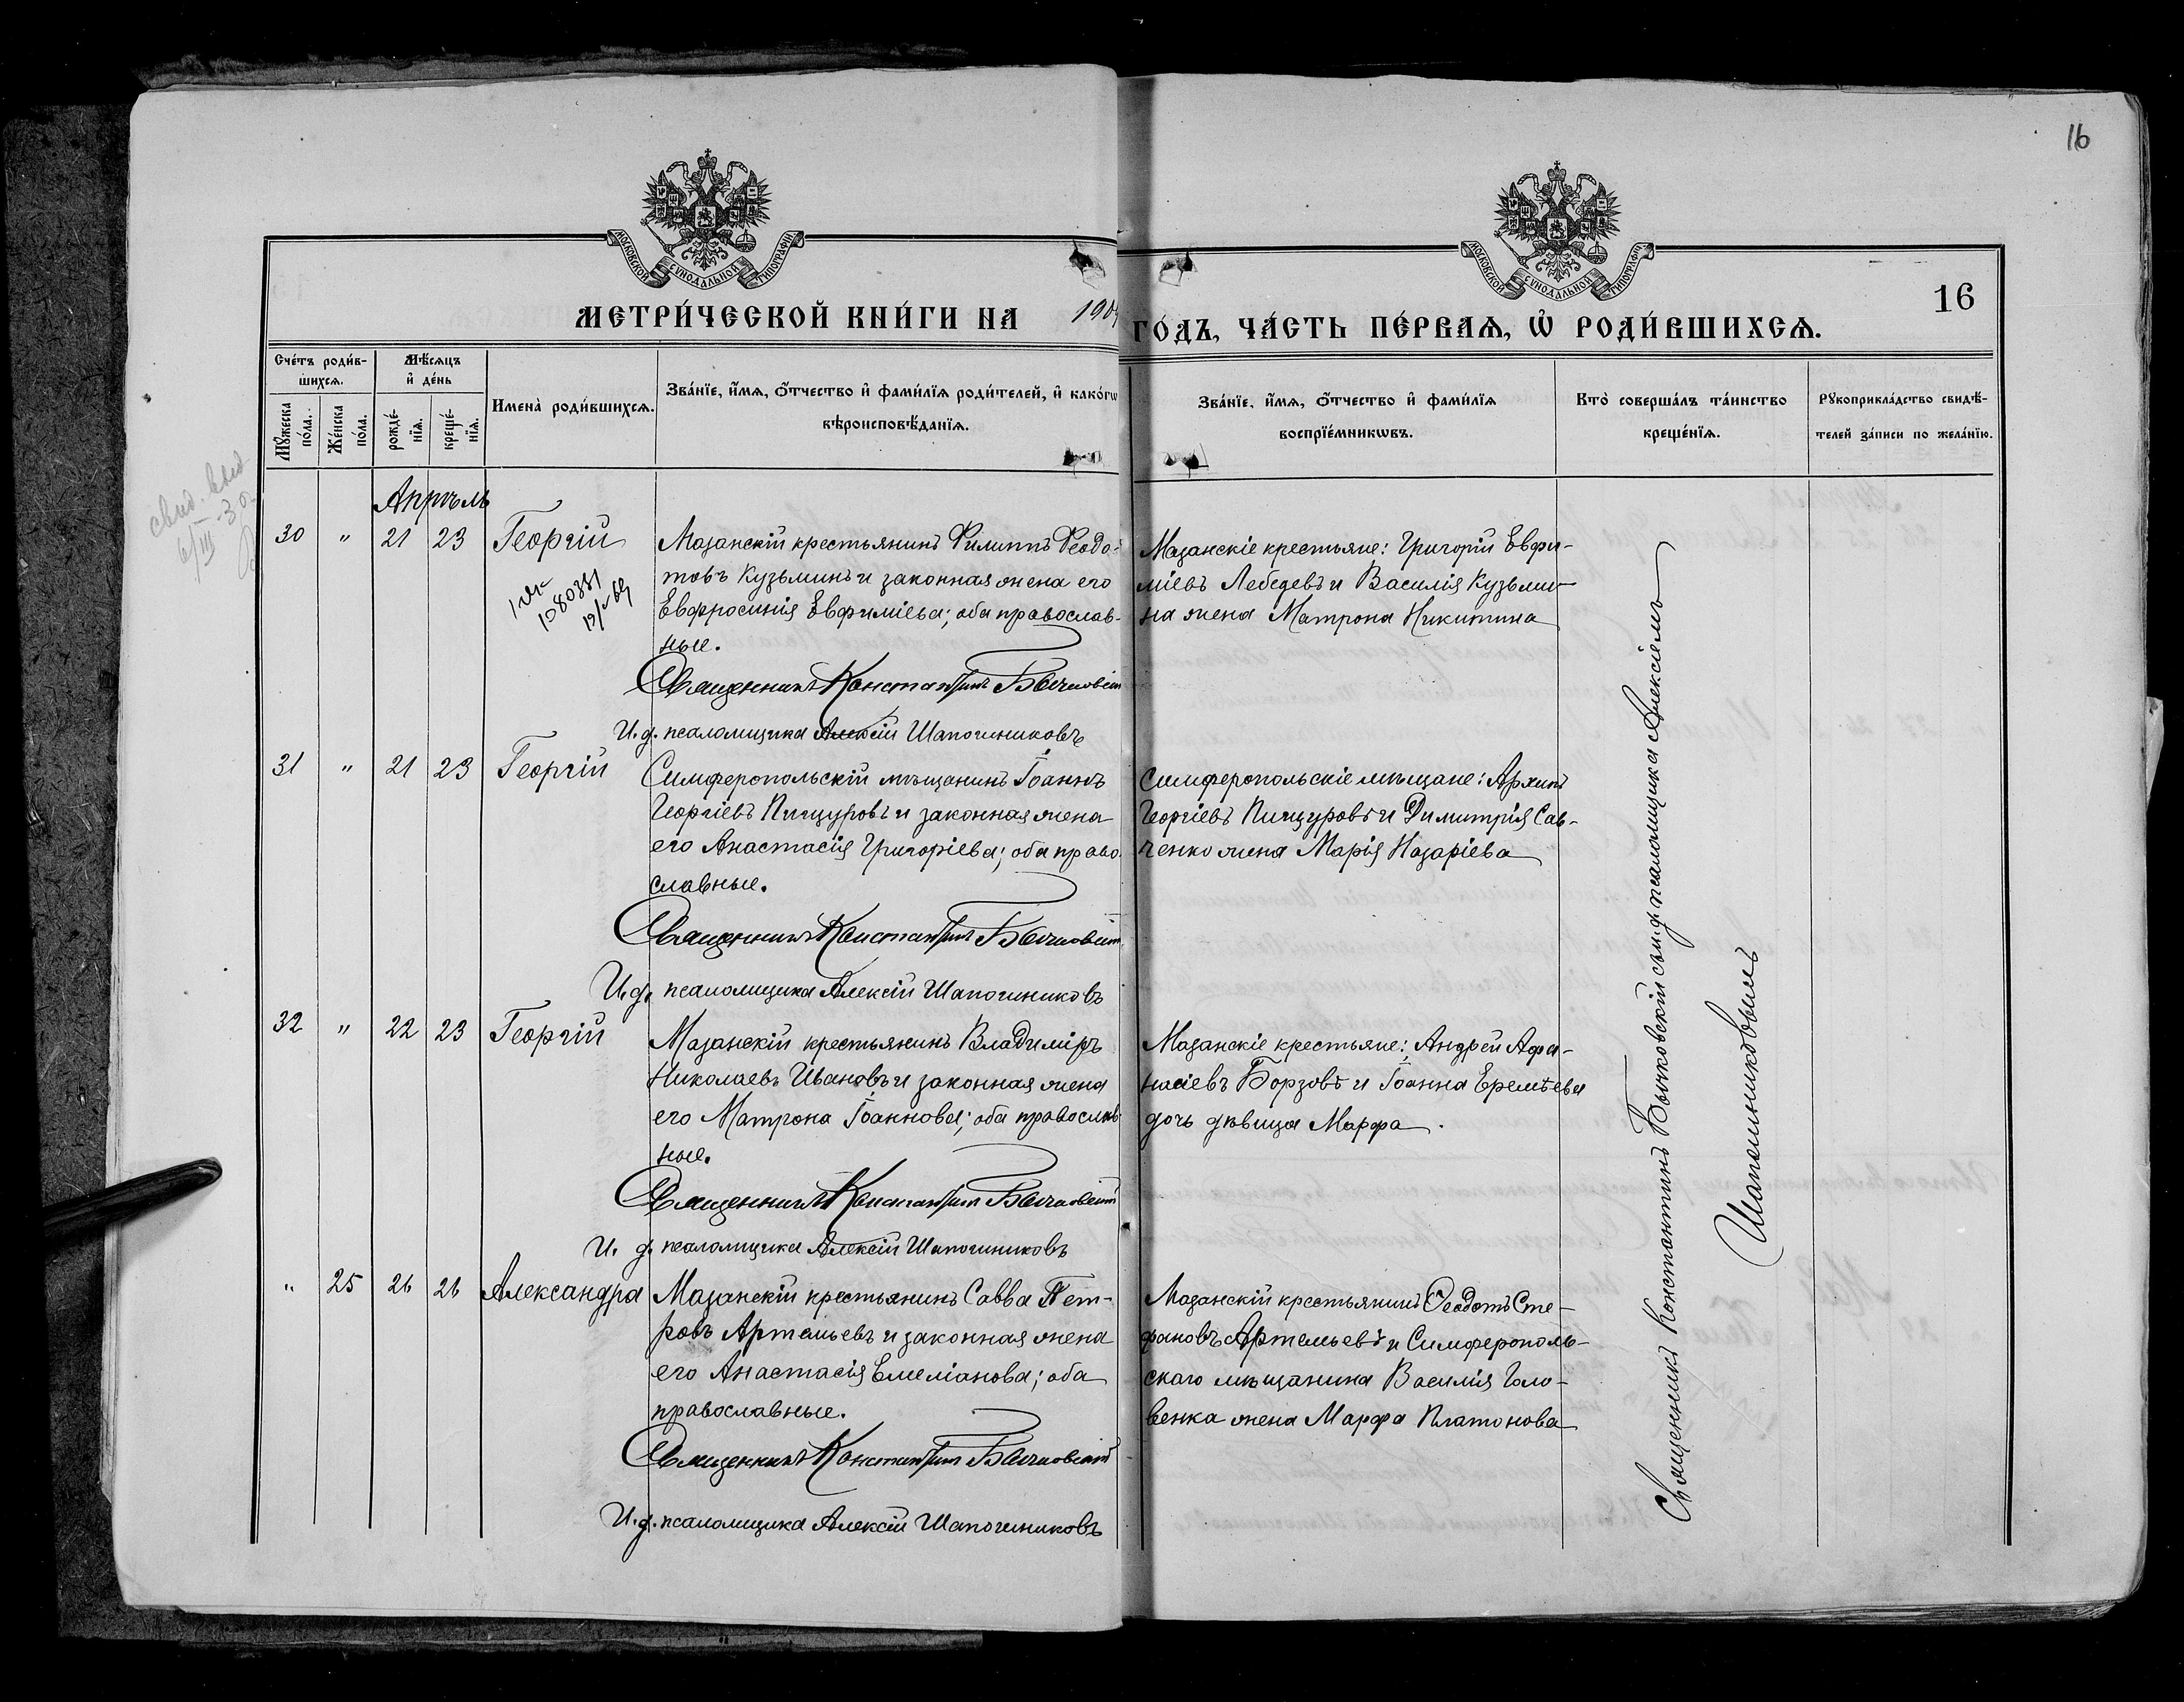 16
МОСКОВСКОЙ СУНОДАЛЬНОЙ ТИПОГРАФІИ
МОСКОВСКОЙ СУНОДАЛЬНОЙ ТИПОГРАФІИ
16
МЕТРИ́ЧЕСКОЙ КНИ́ГИ НА 190
ГО́ДЪ, ЧА́СТЬ ПЕ́РВАѦ, Ѡ҆ РОДИ́ВШИХСѦ.
Сче́тъ роди́в-
шихсѧ.
Мѣ́сѧцъ
и҆ де́нь
Мꙋ́жеска
по́ла.
Же́нска
по́ла.
рожде́-
нїѧ.
креще́-
нїѧ.
Имена̀ роди́вшихсѧ.
Зва́нїе, и҆́мѧ, ѻ҆́тчество и҆ фами́лїѧ роди́телей, и҆ како́гѡ
вѣроисповѣ́данїѧ.
Зва́нїе, и҆́мѧ, ѻ҆́тчество и҆ фами́лїѧ
воспрїе́мникѡвъ.
Кто̀ соверша́лъ та́инство
креще́нїѧ.
Рꙋкоприкла́дство свидѣ́-
телей за́писи по жела́нїю.
свид. выд
6/III-30
Апрѣль
30 " 21 23 Георгій
Мазанскій крестьянинъ Филиппъ Феодо-
товъ Кузьминъ и законная жена его
Евфросинія Евфиміева; оба православ-
ные.
Священникъ Константинъ Бычковскій
И.д. псаломщика Алексій Шапошниковъ
Мазанскіе крестьяне: Григорій Евфи-
міевъ Лебедевъ и Василія Кузьми-
на жена Матрона Никитина
31 " 21 23 Георгій
Симферопольскій мѣщанинъ Іоаннъ
Георгіевъ Пищуровъ и законная жена
его Анастасія Григоріева; оба право-
славные.
Священникъ Константинъ Бычковскій
И.д. псаломщика Алексій Шапошниковъ
Симферопольскіе мѣщане: Архипъ
Георгіевъ Пищуровъ и Димитрія Сав-
ченко жена Марія Назаріева
32 " 22 23 Георгій
Мазанскій крестьянинъ Владиміръ
Николаевъ Ивановъ и законная жена
его Матрона Іоаннова; оба православ
ные.
Священникъ Константинъ Бычковскій
И. д. псаломщика Алексій Шапошниковъ
Мазанскіе крестьяне: Андрей Афа-
насіевъ Борзовъ и Іоанна Еремѣева
дочь дѣвица Марфа.
" 25 26 26 Александра
Мазанскій крестьянинъ Савва Пет-
ровъ Артемьевъ и законная жена
его Анастасія Емеліанова; оба
православные.
Священникъ Константинъ Бычковскій
И.д. псаломщика Алексій Шапошниковъ
Мазанскій крестьянинъ Феодотъ Сте-
фановъ Артемьевъ и Симферополь-
скаго мѣщанина Василія Голо-
венка жена Марфа Платонова
Священникъ Константинъ Бычковскій съ и.д. псаломщика Алексіемъ
Шапошниковымъ